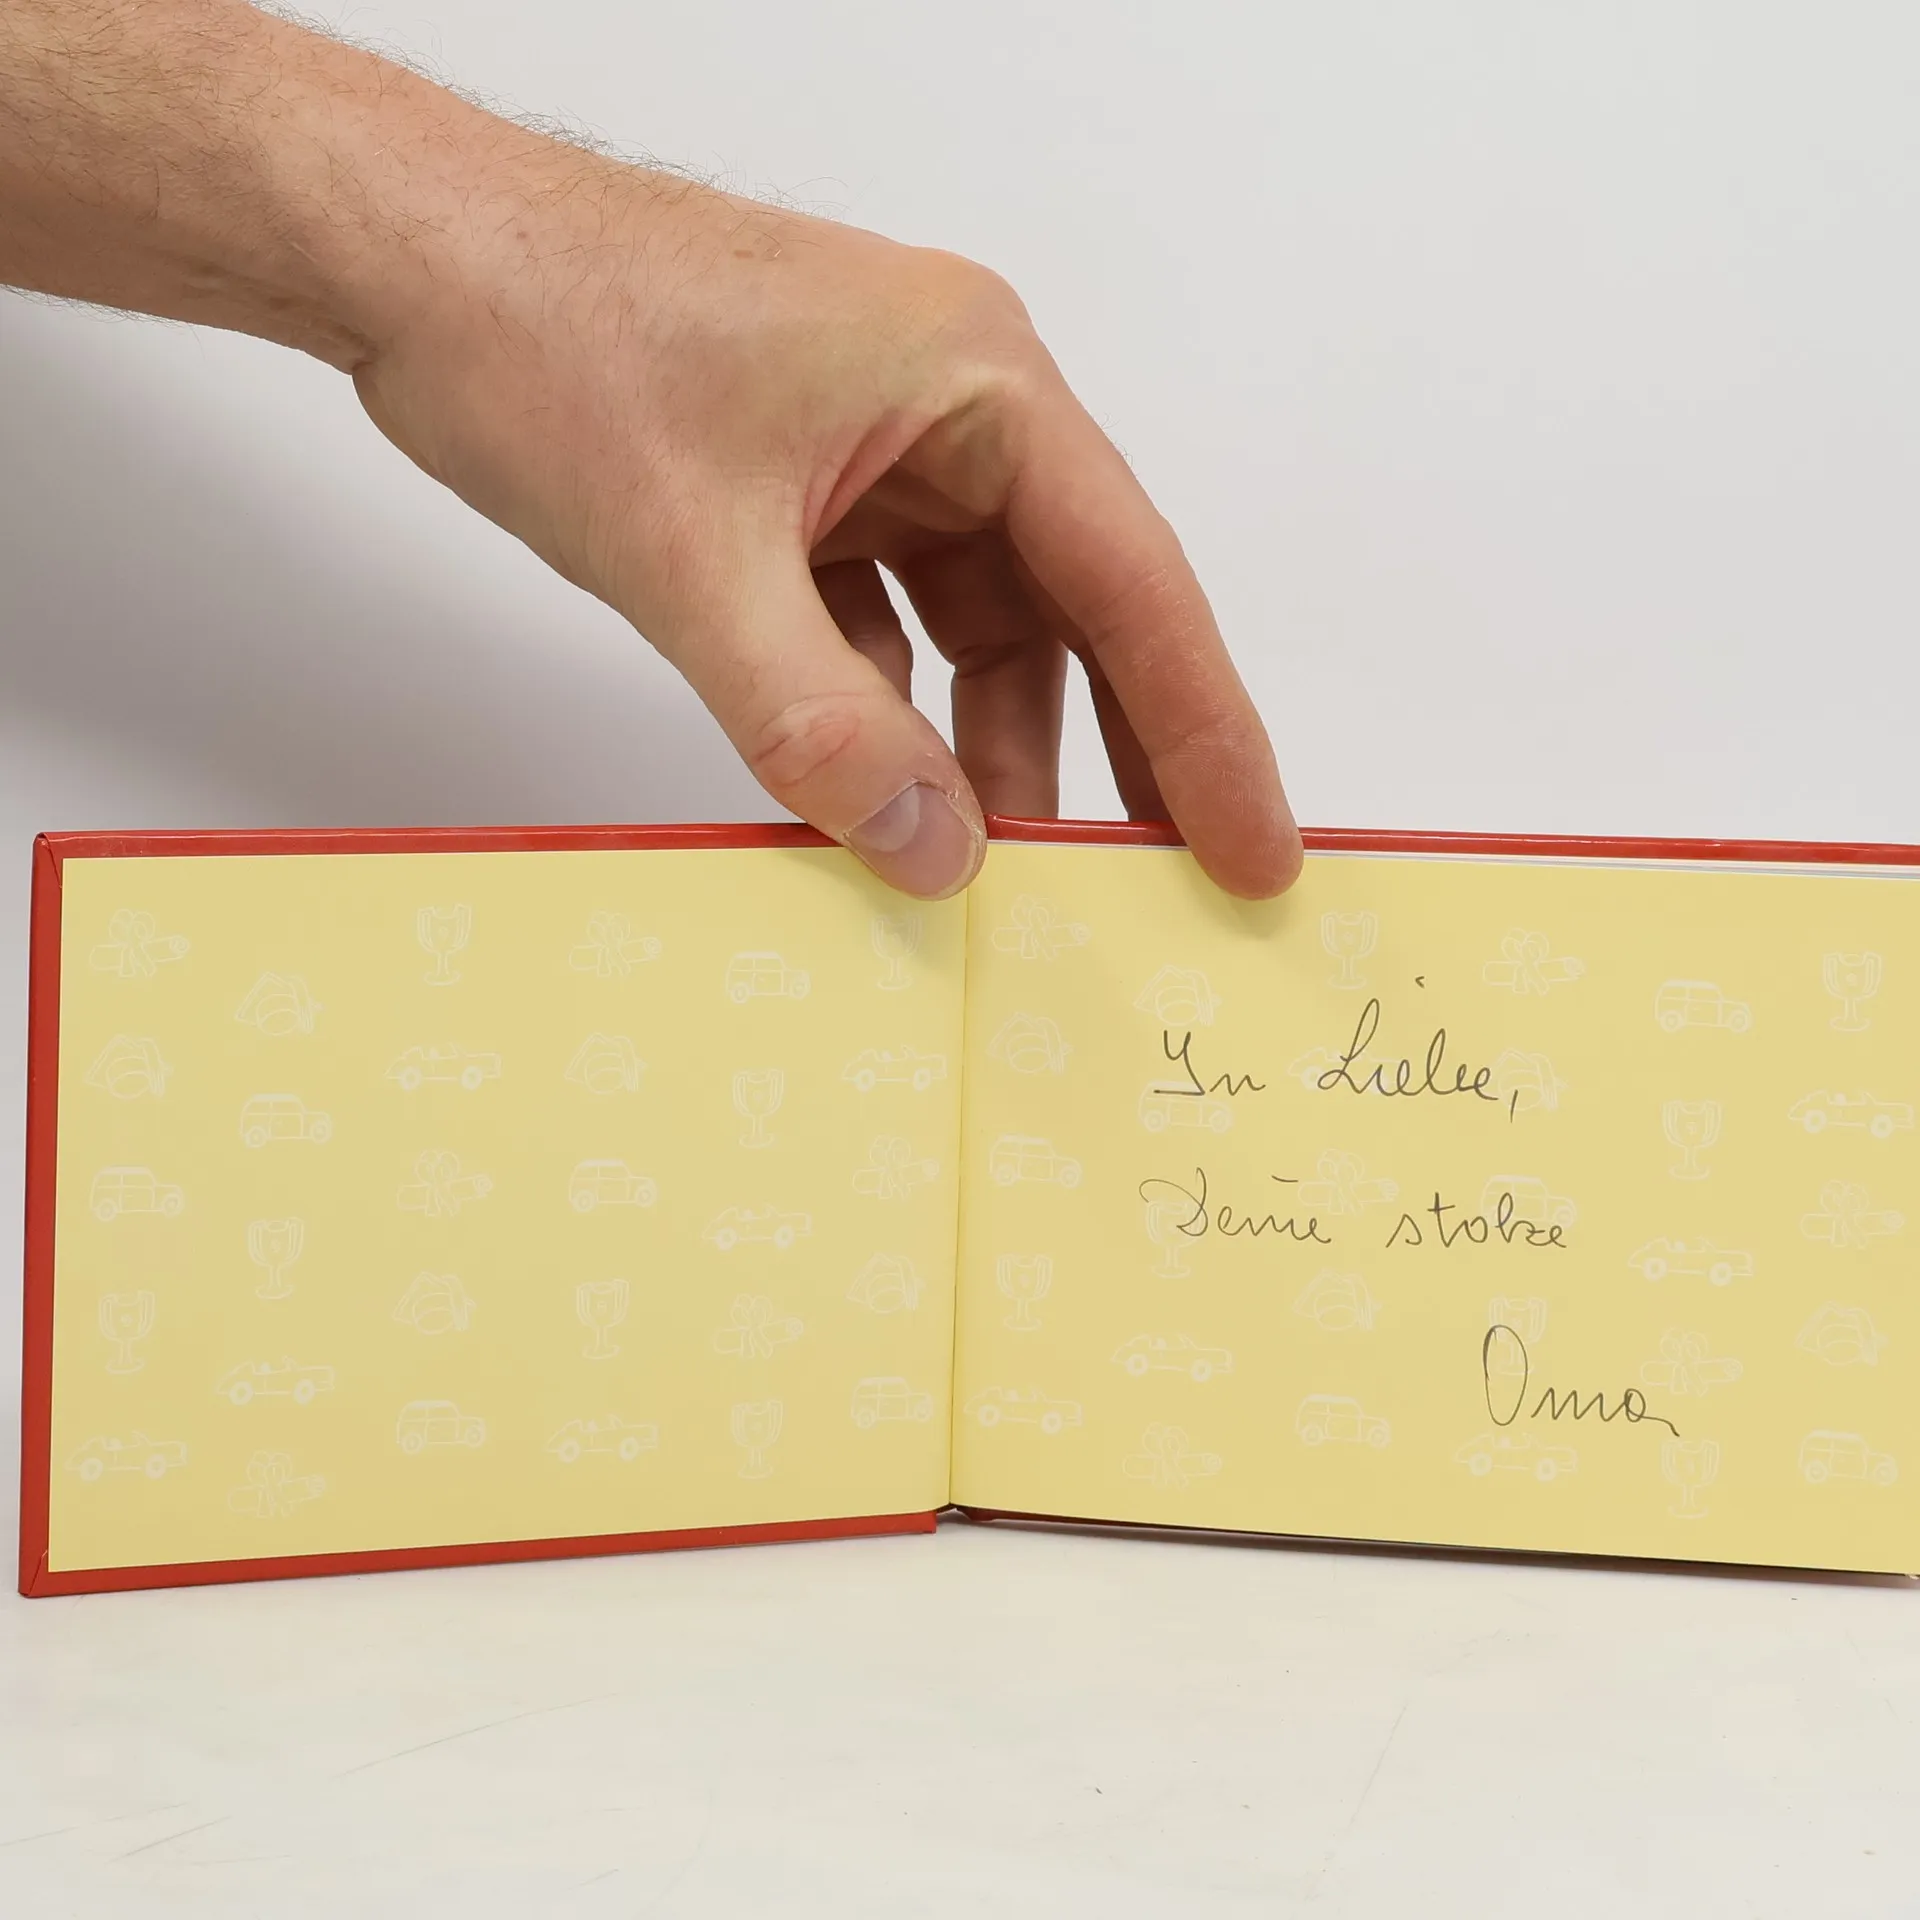 In Liebe,
Deine stolze
Oma